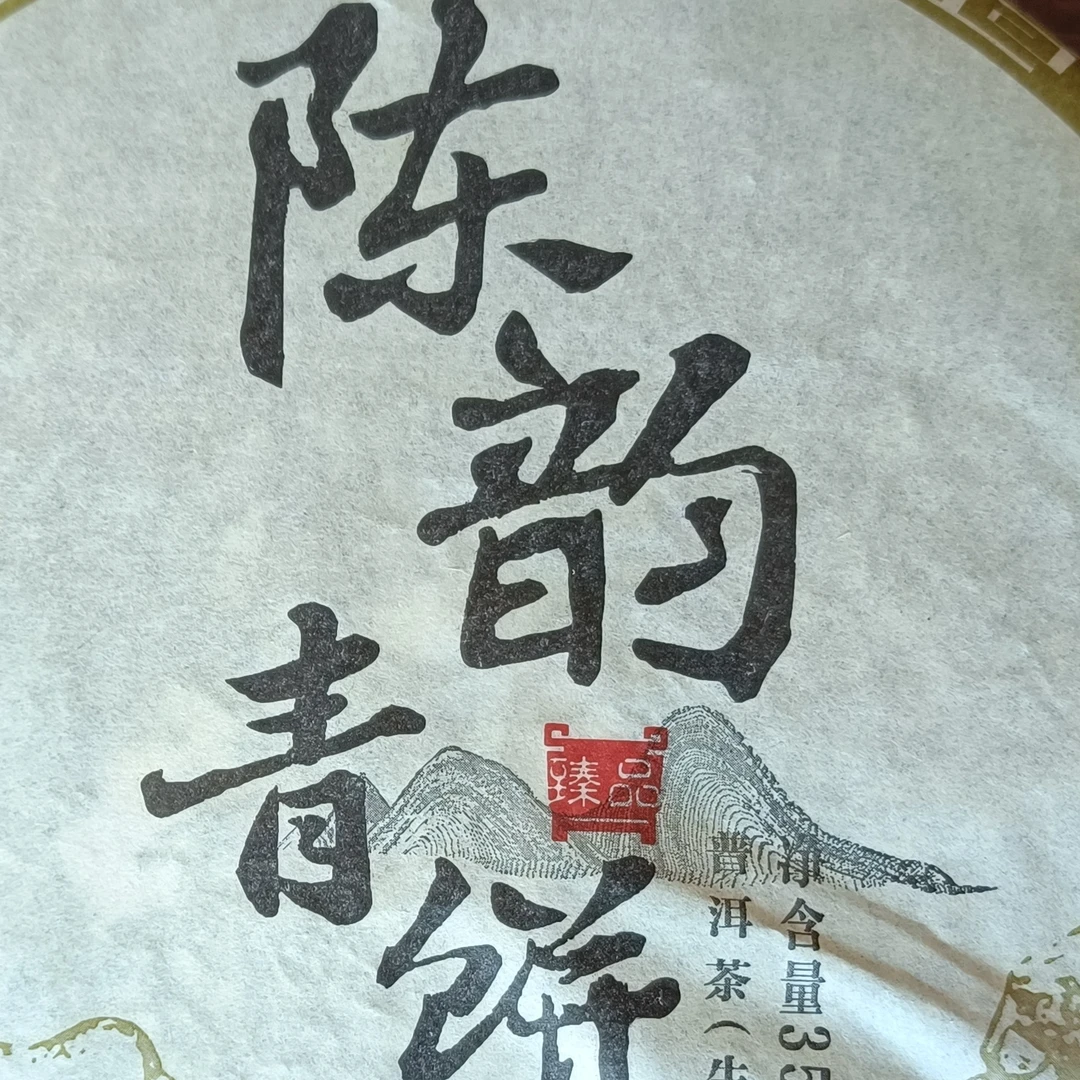 陈韵
青饼
臻品
净含量35
普洱茶（生